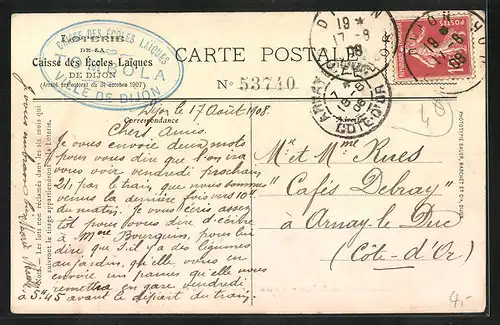 LOTERIE
DE LA
Caisse des Écoles Laïques
DE DIJON
(Arrêté préfectoral du 31 octobre 1907)
CAISSE DES ÉCOLES LAÏQUES
VILLE DE DIJON
CARTE POSTALE
N° 53740
DIJON
19 *
17 - 8
08
ARNAY LE DUC
CÔTE-D'OR
Correspondance
Dijon le 17 Août 1908.
Chers Amis.
Je vous envoie deux mots
pour vous dire que l'on ira
vous voir vendredi prochain
21, par le train, que nous sommes
venus la dernière fois vers 10h
du matin. Je vous écris aussi
pour vous dire d'écrire
à Mme Bourguin, pour lui
dire que s'il y a des légumes
au jardin, qu'elle vous en
envoie un panier qu'elle nous
remettra en gare vendredi
à 5h45 avant le départ du train.
Mr et Mme Rues
"Cafés Debray"
à Arnay-le Duc
(Côte-d'Or)
48
4.-
Les lots non réclamés dans les six mois qui
suivront le tirage appartiendront à la Loterie.